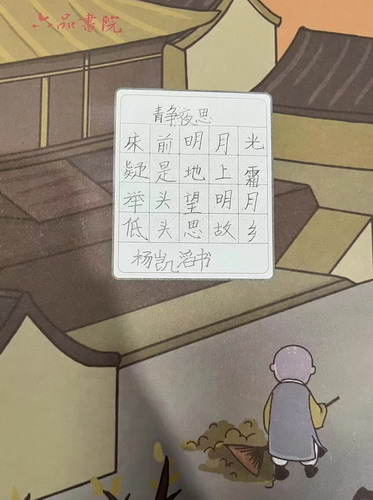 六品書院
静夜思
床前明月光
疑是地上霜
举头望明月
低头思故乡
杨凯滔书